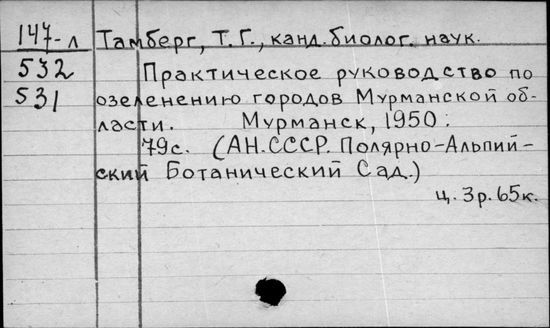 147-л Тамберг, Т. Г., канд. биолог. наук.
532 Практическое руководство по
531 озеленению городов Мурманской об-
ласти. Мурманск, 1950:
79с. (АН.СССР. Полярно-Альпий-
ский Ботанический Сад.)
ц. 3р. 65к.